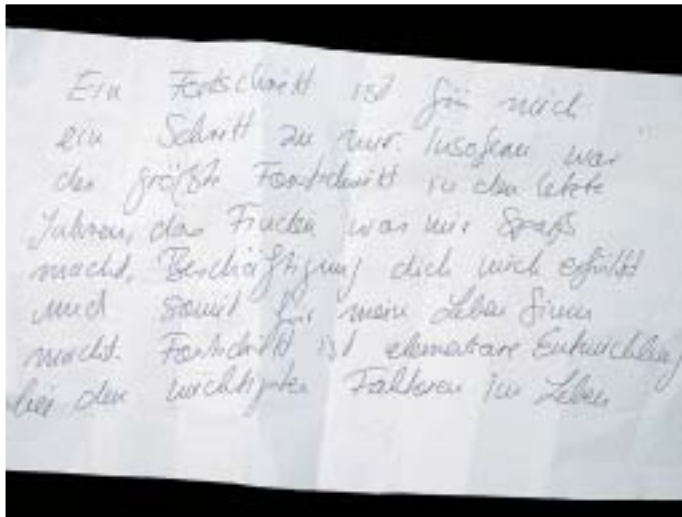 Ein Fortschritt ist für mich
ein Schritt zu mir. Insofern war
der größte Fortschritt in den letzte
Jahren, das Finden was mir Spaß
macht, Beschäftigung dich mich erfüllt
und somit für mein Leben Sinn
macht. Fortschritt ist elementare Entwicklung
bei den wichtigsten Faktoren im Leben